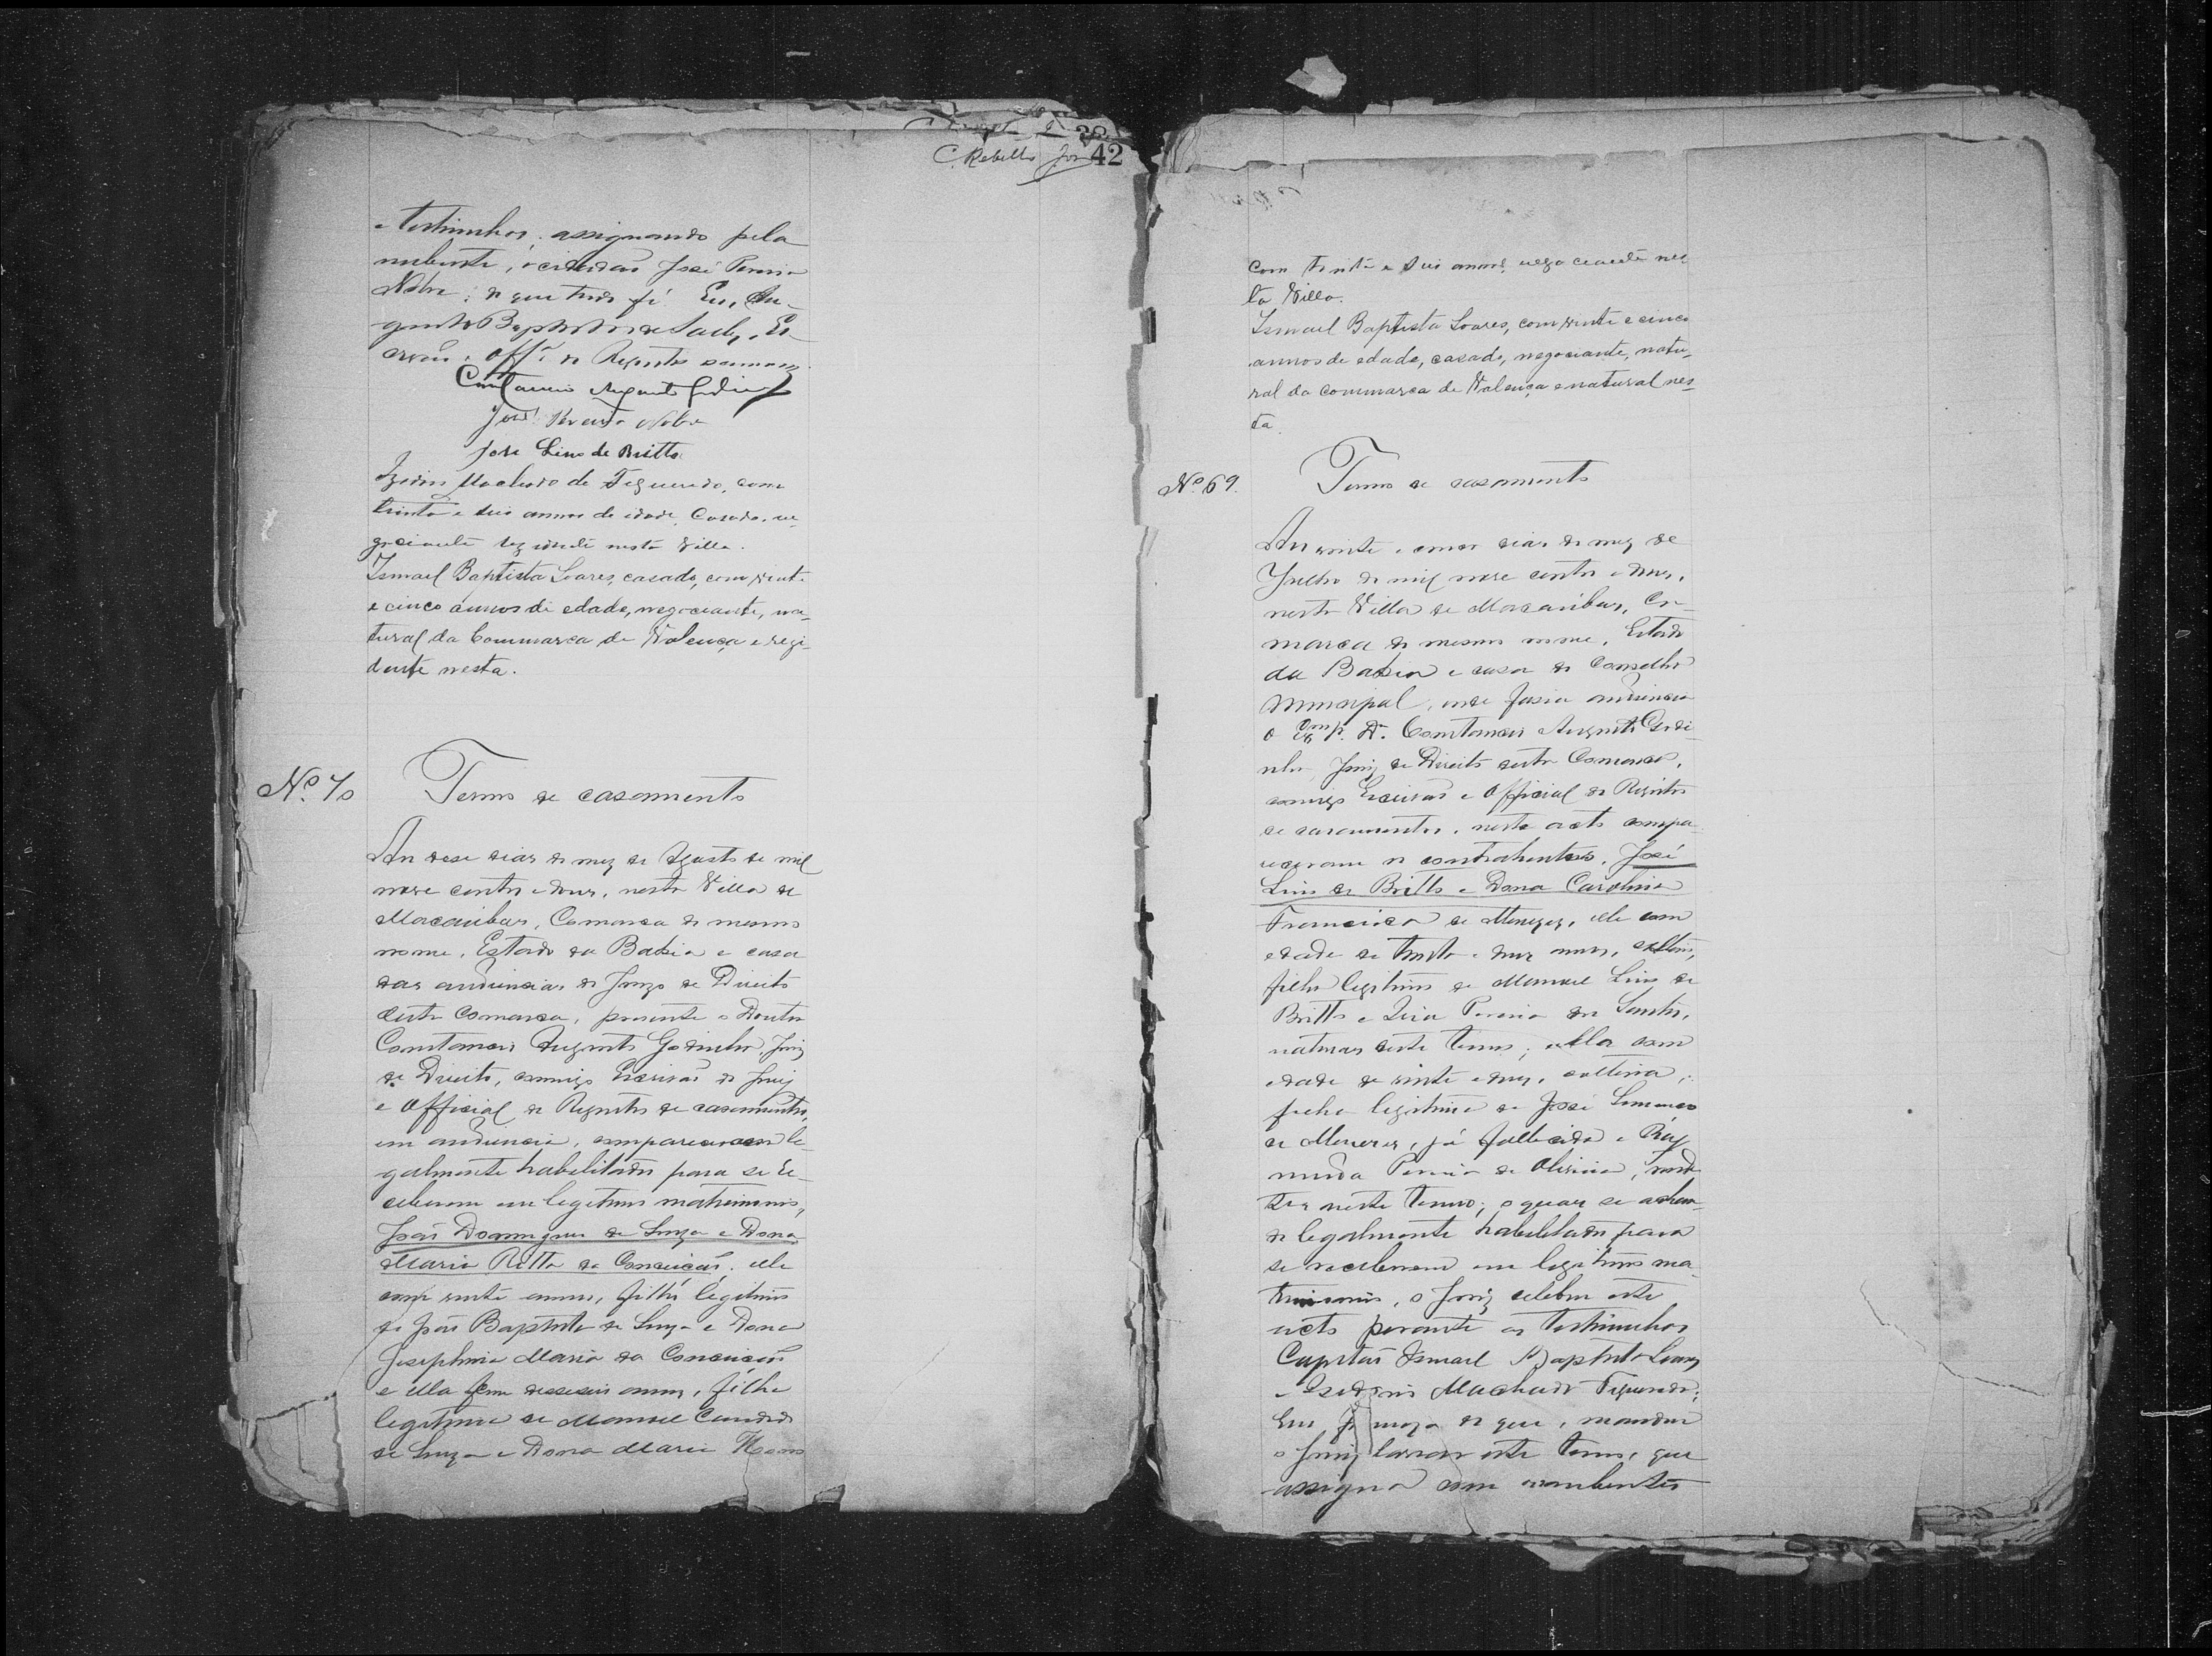 C. Rebello Jor 42
e testimunhas, assignando pela
nubente, o cidadão José Pereira
Nobre; do que tudo fé. Eu, Au-
gusto Baptista de , Es-
crivão e Offal do Registro
Constancio Augusto Godinho
José Pereira Nobre
José Lino de Britto
Izidoro Machado de Figueredo, com
trinta e seis annos de idade, Casado, ne-
gociante rezidente nesta Villa.
Ismael Baptista Soares, casado, com vinte
e cinco annos de edade, negociante, na-
tural da Commarca de Valença e rezi-
dente nesta.
No. 70
Termo de casamento
Aos dose dias do mez de Agosto de mil
nove centos e dous, nesta Villa de
Macaubas, Comarca do mesmo
nome, Estado da Bahia e casa
das audiencias do Juizo de Direito
desta Comarca, presente o Doutor
Constancio Augusto Godinho, Juiz
de Direito, commigo Escrivão do Juiz
e Official do Registro de casamentos,
em audiencia, compareceram le-
galmente habilitados para se re-
ceberem em legitimo matrimonio,
João Domingues de Souza e Dona
Maria Ritta da Conceição, elle
com vinte annos, filho legitimo
de João Baptista de Souza e Dona
Josephina Maria da Conceição
e ella com desseseis annos, filha
legitima de Manoel Candido
de Souza e Dona Maria
com trinta e seis annos, negociante nes-
ta Villa.
Ismael Baptista Soares, com vinte e cinco
annos de edade, casado, negociante, natu-
ral da commarca de Valença e natural nes-
ta.
No. 69.
Termo de casamento
Aos vinte e cinco dias do mez de
Julho de mil nove centos e dous,
nesta Villa de Macaubas, Co-
marca do mesmo nome, Estado
da Bahia e casa do Conselho
Municipal, onde fasia audiencia
o Exmo. Dr. Constancio Augusto Godi-
nho, Juiz de Direito desta Comarca,
comigo Escrivão e Official do Registro
de casamentos, neste acto compa-
receram os contrahentes, José
Lino de Britto e Dona Carolina
Francisca de Menezes, elle com
edade de trinta e dous annos, solteiro,
filho legitimo de Manoel Lino de
Britto e Pereira dos Santos,
naturaes deste termo; ella com
edade de vinte e dous, solteira,
filha legitima de José
de Menezes, já fallecido e Ray-
munda Pereira de Oliveira,
neste termo; os quaes se achan-
do legalmente habilitados para
se receberem em legitimo ma-
trimonio, o Juiz celebra este
acto perante as testimunhas
Capitão Ismael Baptista Soares
e Izidoro Machado Figueredo;
do que, mandou
o Juiz lavrar este termo, que
assigna com os nubentes